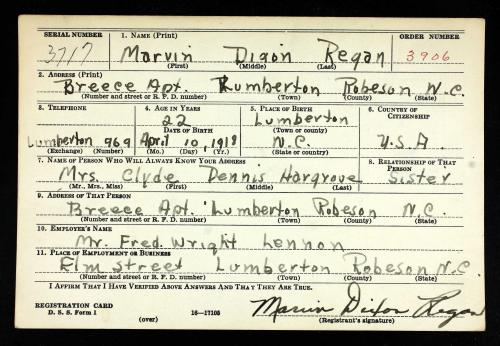 SERIAL NUMBER 1. NAME (Print) ORDER NUMBER
3717 Marvin Dixon Regan 3906
(First) (Middle) (Last)
2. ADDRESS (Print)
Breece Apt. Lumberton Robeson N.C.
(Number and street or R. F. D. number) (Town) (County) (State)
3. TELEPHONE 4. AGE IN YEARS 5. PLACE OF BIRTH 6. COUNTRY OF CITIZENSHIP
22 Lumberton
DATE OF BIRTH (Town or county)
Lumberton 969 April 10, 1918 N.C. U.S.A.
(Exchange) (Number) (Mo.) (Day) (Yr.) (State or country)
7. NAME OF PERSON WHO WILL ALWAYS KNOW YOUR ADDRESS 8. RELATIONSHIP OF THAT PERSON
Mrs. Clyde Dennis Hargrove Sister
(Mr., Mrs., Miss) (First) (Middle) (Last)
9. ADDRESS OF THAT PERSON
Breece Apt. Lumberton Robeson N.C.
(Number and street or R. F. D. number) (Town) (County) (State)
10. EMPLOYER'S NAME
Mr. Fred. Wright Lennon
11. PLACE OF EMPLOYMENT OR BUSINESS
Elm Street Lumberton Robeson N.C.
(Number and street or R. F. D. number) (Town) (County) (State)
I AFFIRM THAT I HAVE VERIFIED ABOVE ANSWERS AND THAT THEY ARE TRUE.
REGISTRATION CARD Marvin Dixon Regan
D. S. S. Form 1 (over) 16—17105 (Registrant's signature)